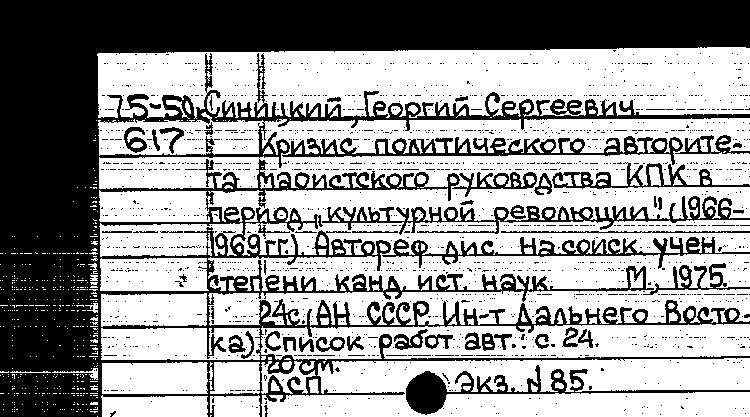 75-50к Синицкий, Георгий Сергеевич.
617 Кризис политического авторите-
та маоистского руководства КПК в
период „культурной революции" (1966-
1969 гг.). Автореф дис. на соиск. учен.
степени канд. ист. наук. М., 1975.
24с. (АН СССР. Ин-т Дальнего Восто-
ка). Список работ авт.: с. 24.
20 см.
ДСП. Экз. N 85.